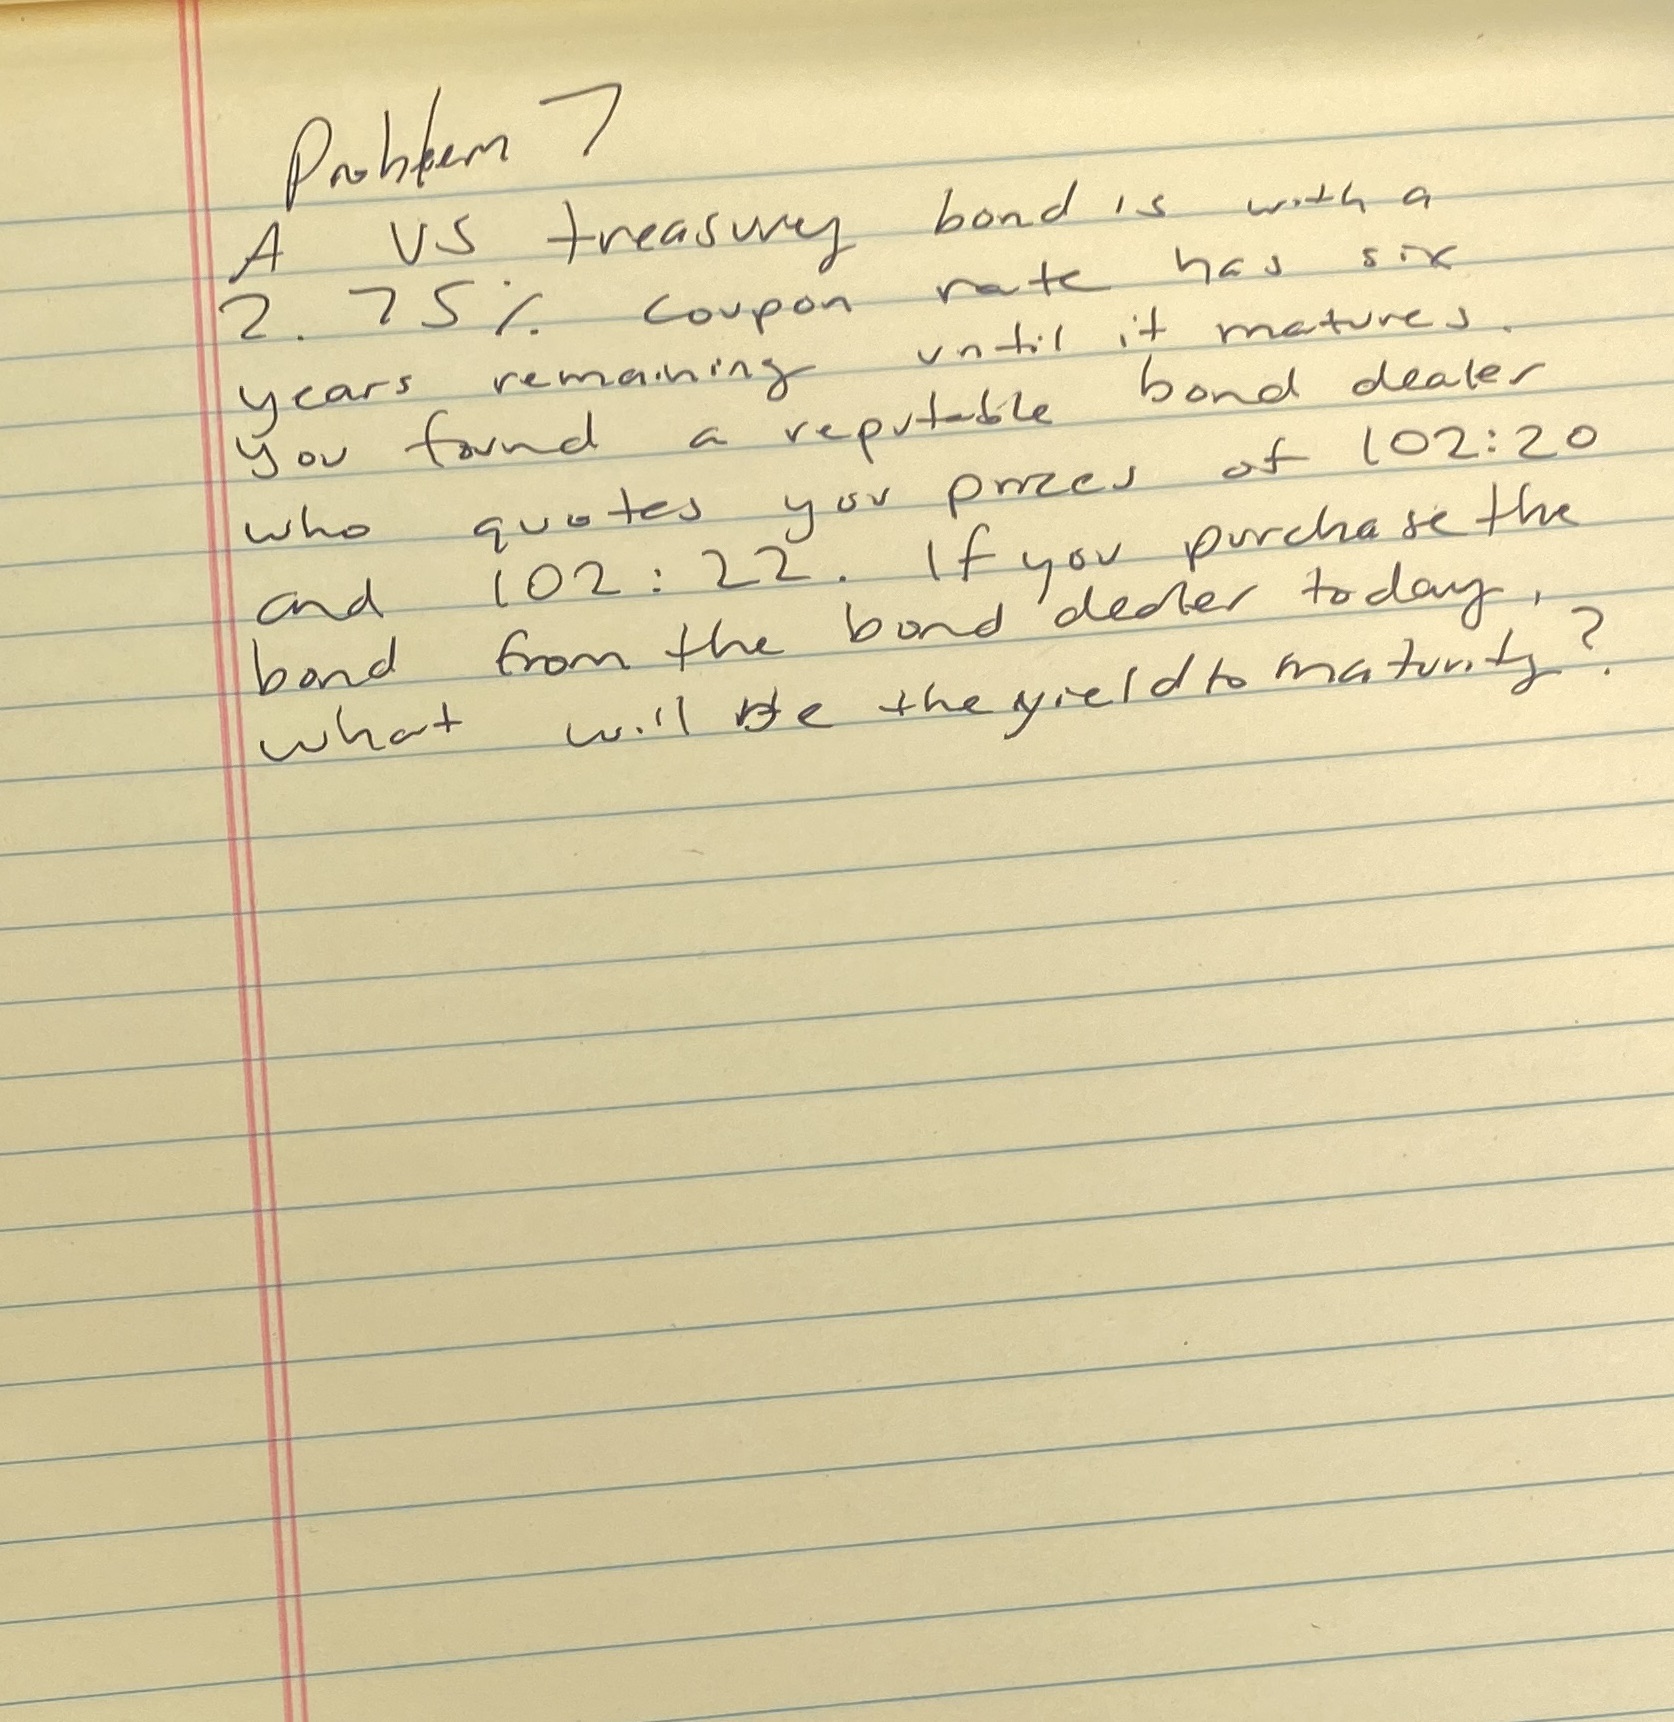 Problem 7
A US treasury bond is with a
2.75% coupon rate has six
years remaining until it matures.
You found a reputable bond dealer
who quotes you prices of 102:20
and 102:22. If you purchase the
bond from the bond dealer today,
what will be the yield to maturity?